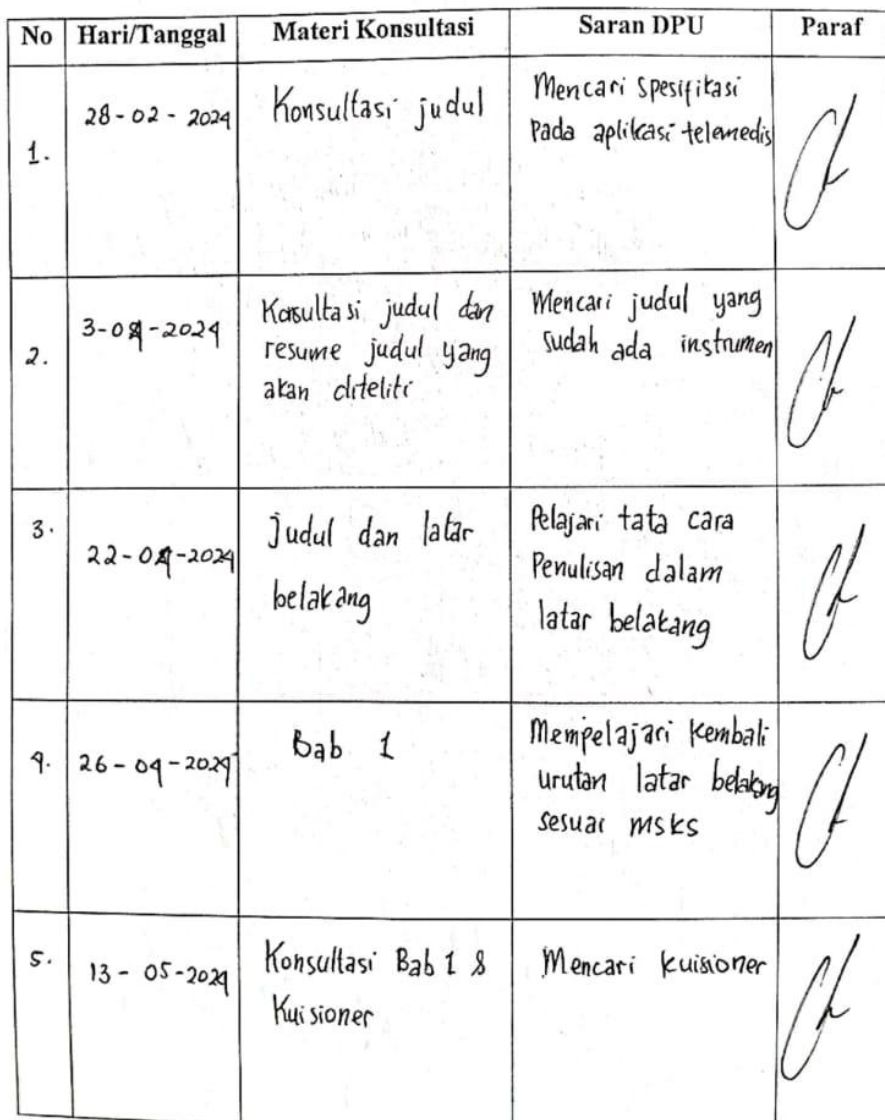 No Hari/Tanggal Materi Konsultasi Saran DPU Paraf
1.
28-02-2024
Konsultasi judul
Mencari spesifikasi
pada aplikasi telemedis
2.
3-04-2024
Konsultasi judul dan
resume judul yang
akan diteliti
Mencari judul yang
sudah ada instrumen
3.
22-04-2024
Judul dan latar
belakang
Pelajari tata cara
Penulisan dalam
latar belakang
4.
26-04-2024
Bab 1
Mempelajari kembali
urutan latar belakang
sesuai msks
5.
13-05-2024
Konsultasi Bab 1 &
Kuisioner
Mencari kuisioner